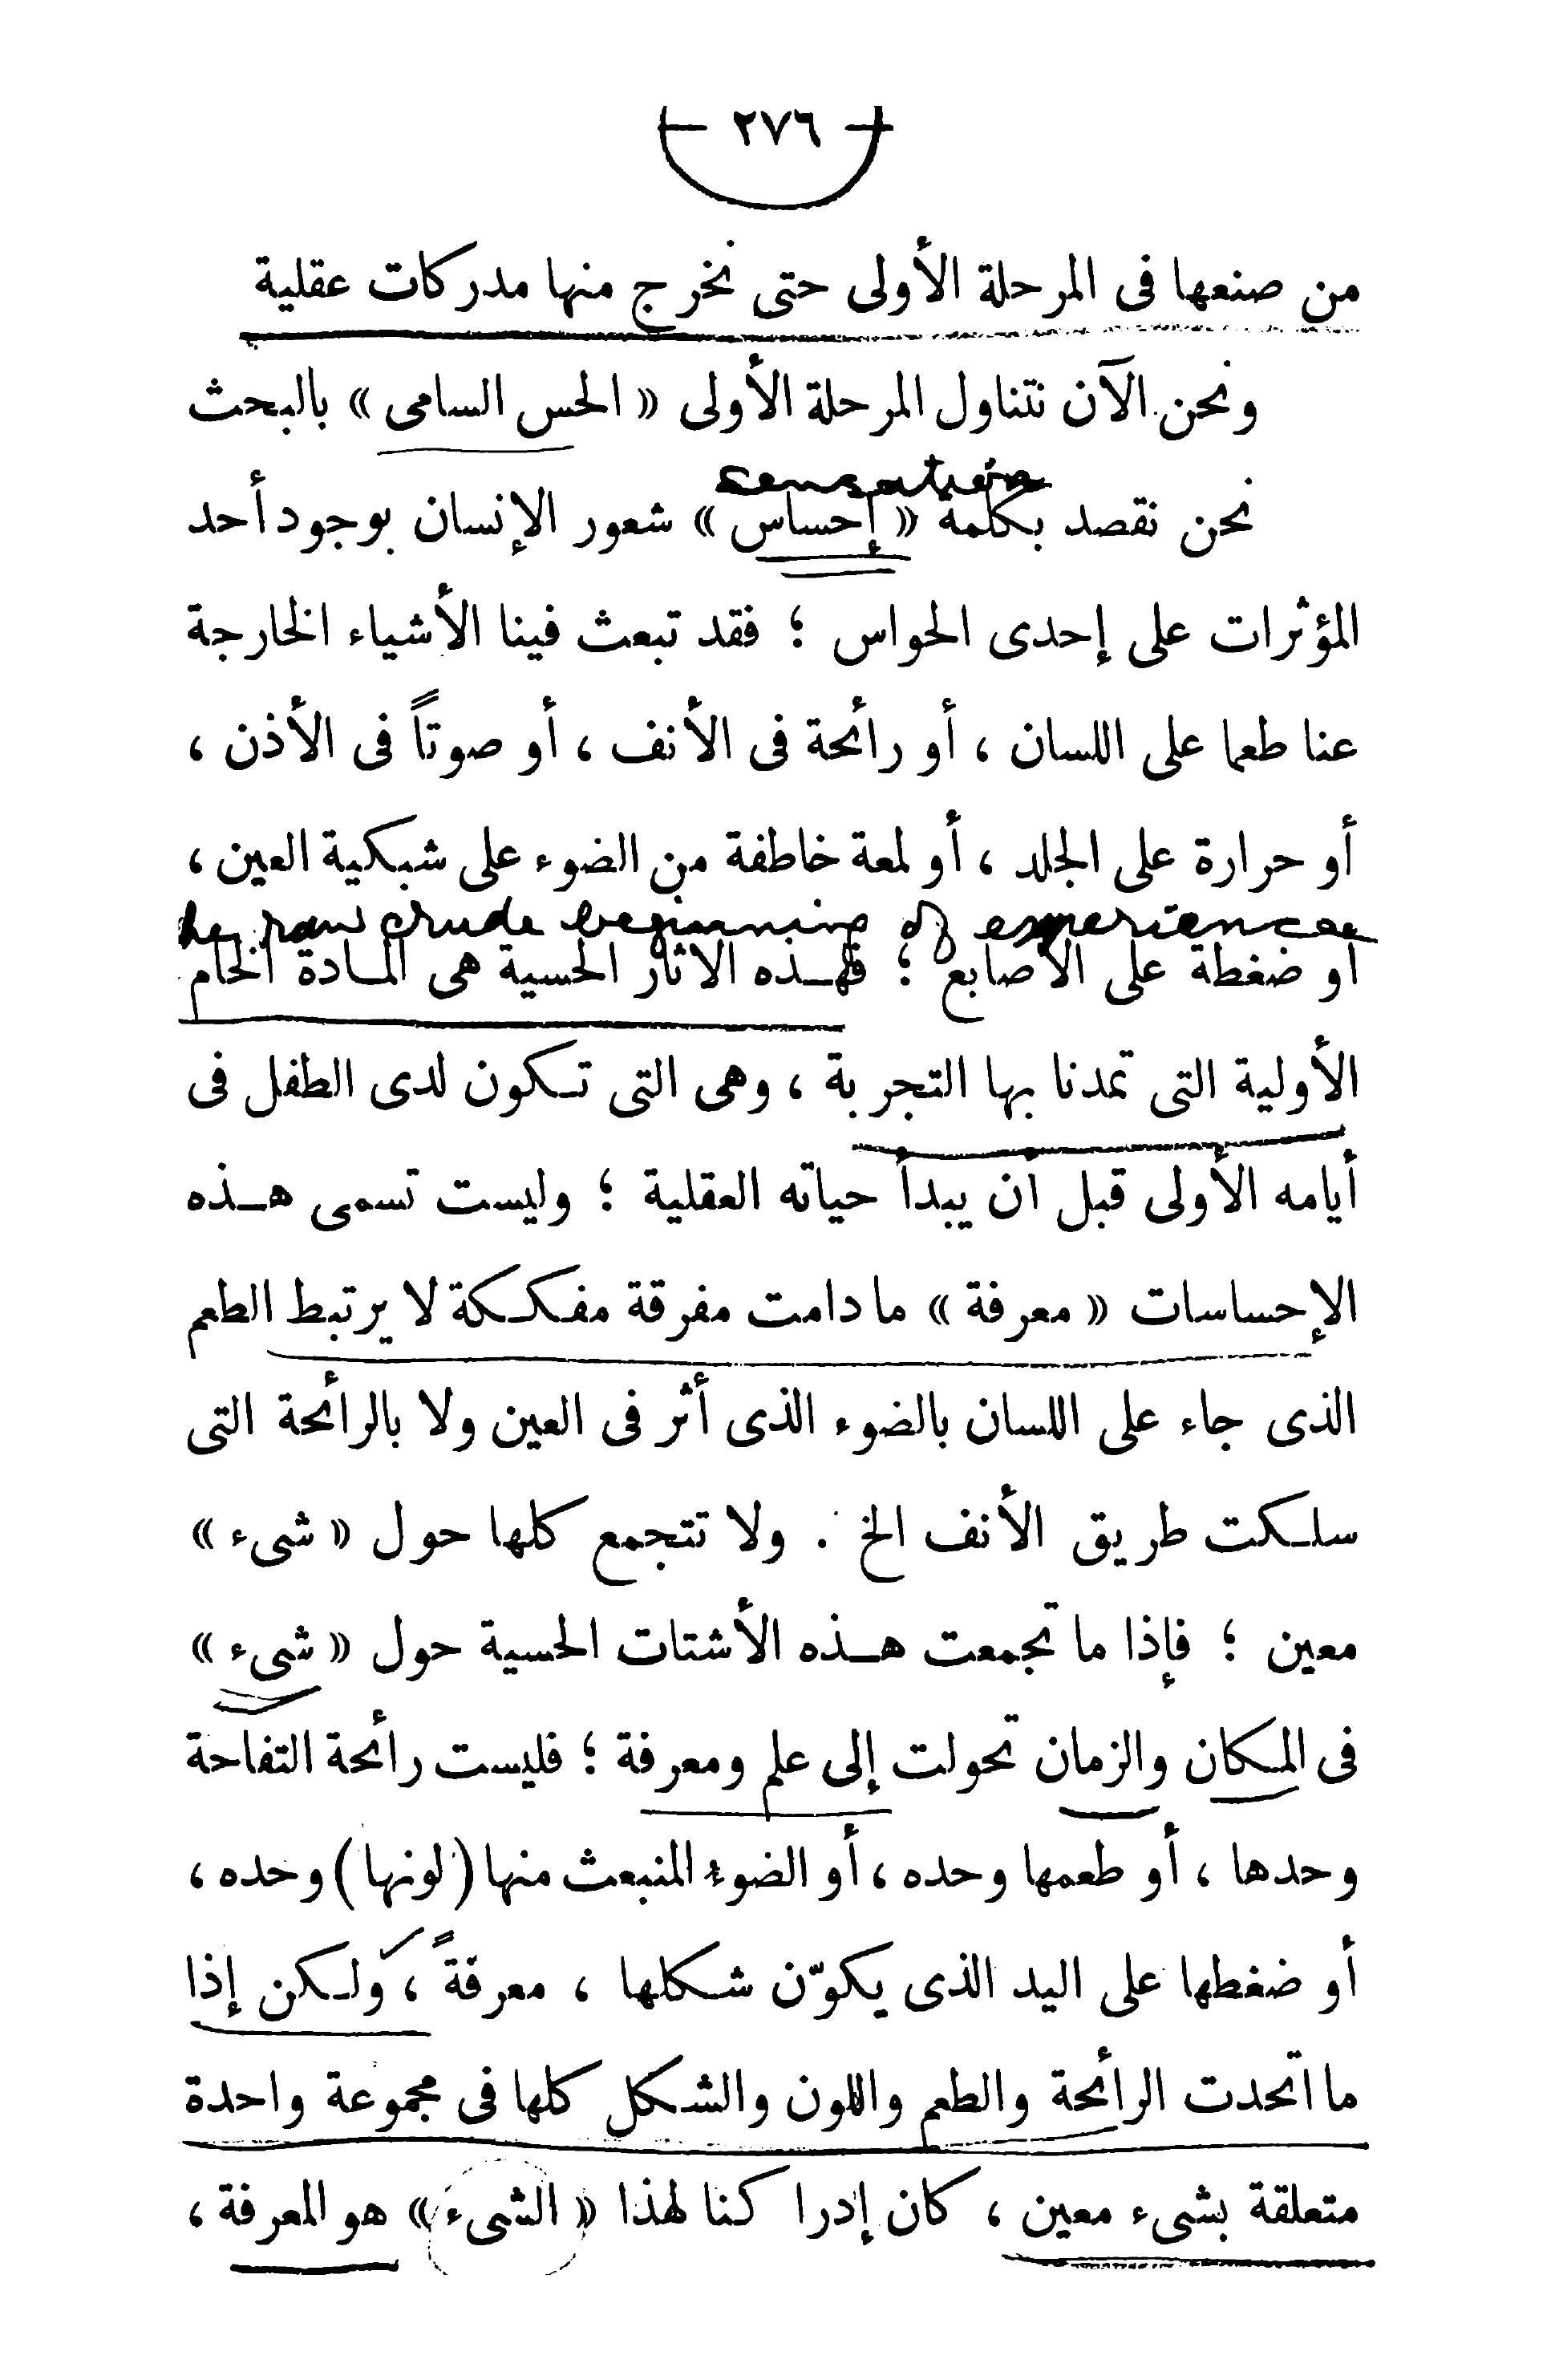 — ٢٧٦ —
من صنعها فى المرحلة الأولى حتى نخرج منها مدركات عقلية
ونحن الآن نتناول المرحلة الأولى « الحس السامى » بالبحث
sensation
نحن نقصد بكلمة « إحساس » شعور الإنسان بوجود أحد
المؤثرات على إحدى الحواس ؛ فقد تبعث فينا الأشياء الخارجة
عنا طعما على اللسان ، أو رائحة فى الأنف ، أو صوتاً فى الأذن ،
أو حرارة على الجلد ، أو لمعة خاطفة من الضوء على شبكية العين ،
raw crude beginning of experience
أو ضغطة على الأصابع ؛ فهذه الآثار الحسية هى المادة الخام
الأولية التى تمدنا بها التجربة ، وهى التى تكون لدى الطفل فى
أيامه الأولى قبل أن يبدأ حياته العقلية ؛ وليست تسمى هذه
الإحساسات « معرفة » ما دامت مفرقة مفككة لا يرتبط الطعم
الذى جاء على اللسان بالضوء الذى أثر فى العين ولا بالرائحة التى
سلكت طريق الأنف الخ . ولا تتجمع كلها حول « شىء »
معين ؛ فإذا ما تجمعت هذه الأشتات الحسية حول « شىء »
فى المكان والزمان تحولت إلى علم ومعرفة ؛ فليست رائحة التفاحة
وحدها ، أو طعمها وحده ، أو الضوء المنبعث منها (لونها) وحده ،
أو ضغطها على اليد الذى يكوّن شكلها ، معرفةً ، ولكن إذا
ما اتحدت الرائحة والطعم واللون والشكل كلها فى مجموعة واحدة
متعلقة بشىء معين ، كان إدراكنا لهذا « الشىء » هو المعرفة ،